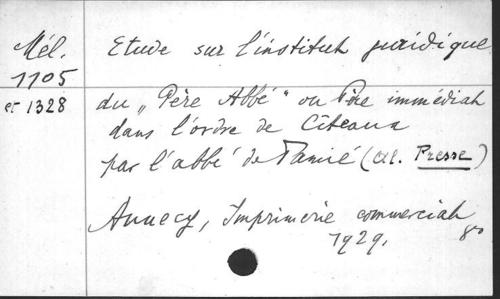 Mél.
1105
et 1328
Etude sur l'institut juridique
du „Père Abbé" ou Père immédiat
dans l'ordre de Cîteaux
par l'abbé de Tamié (Al. Presse)
Annecy, Imprimerie commerciale
1929. 8°